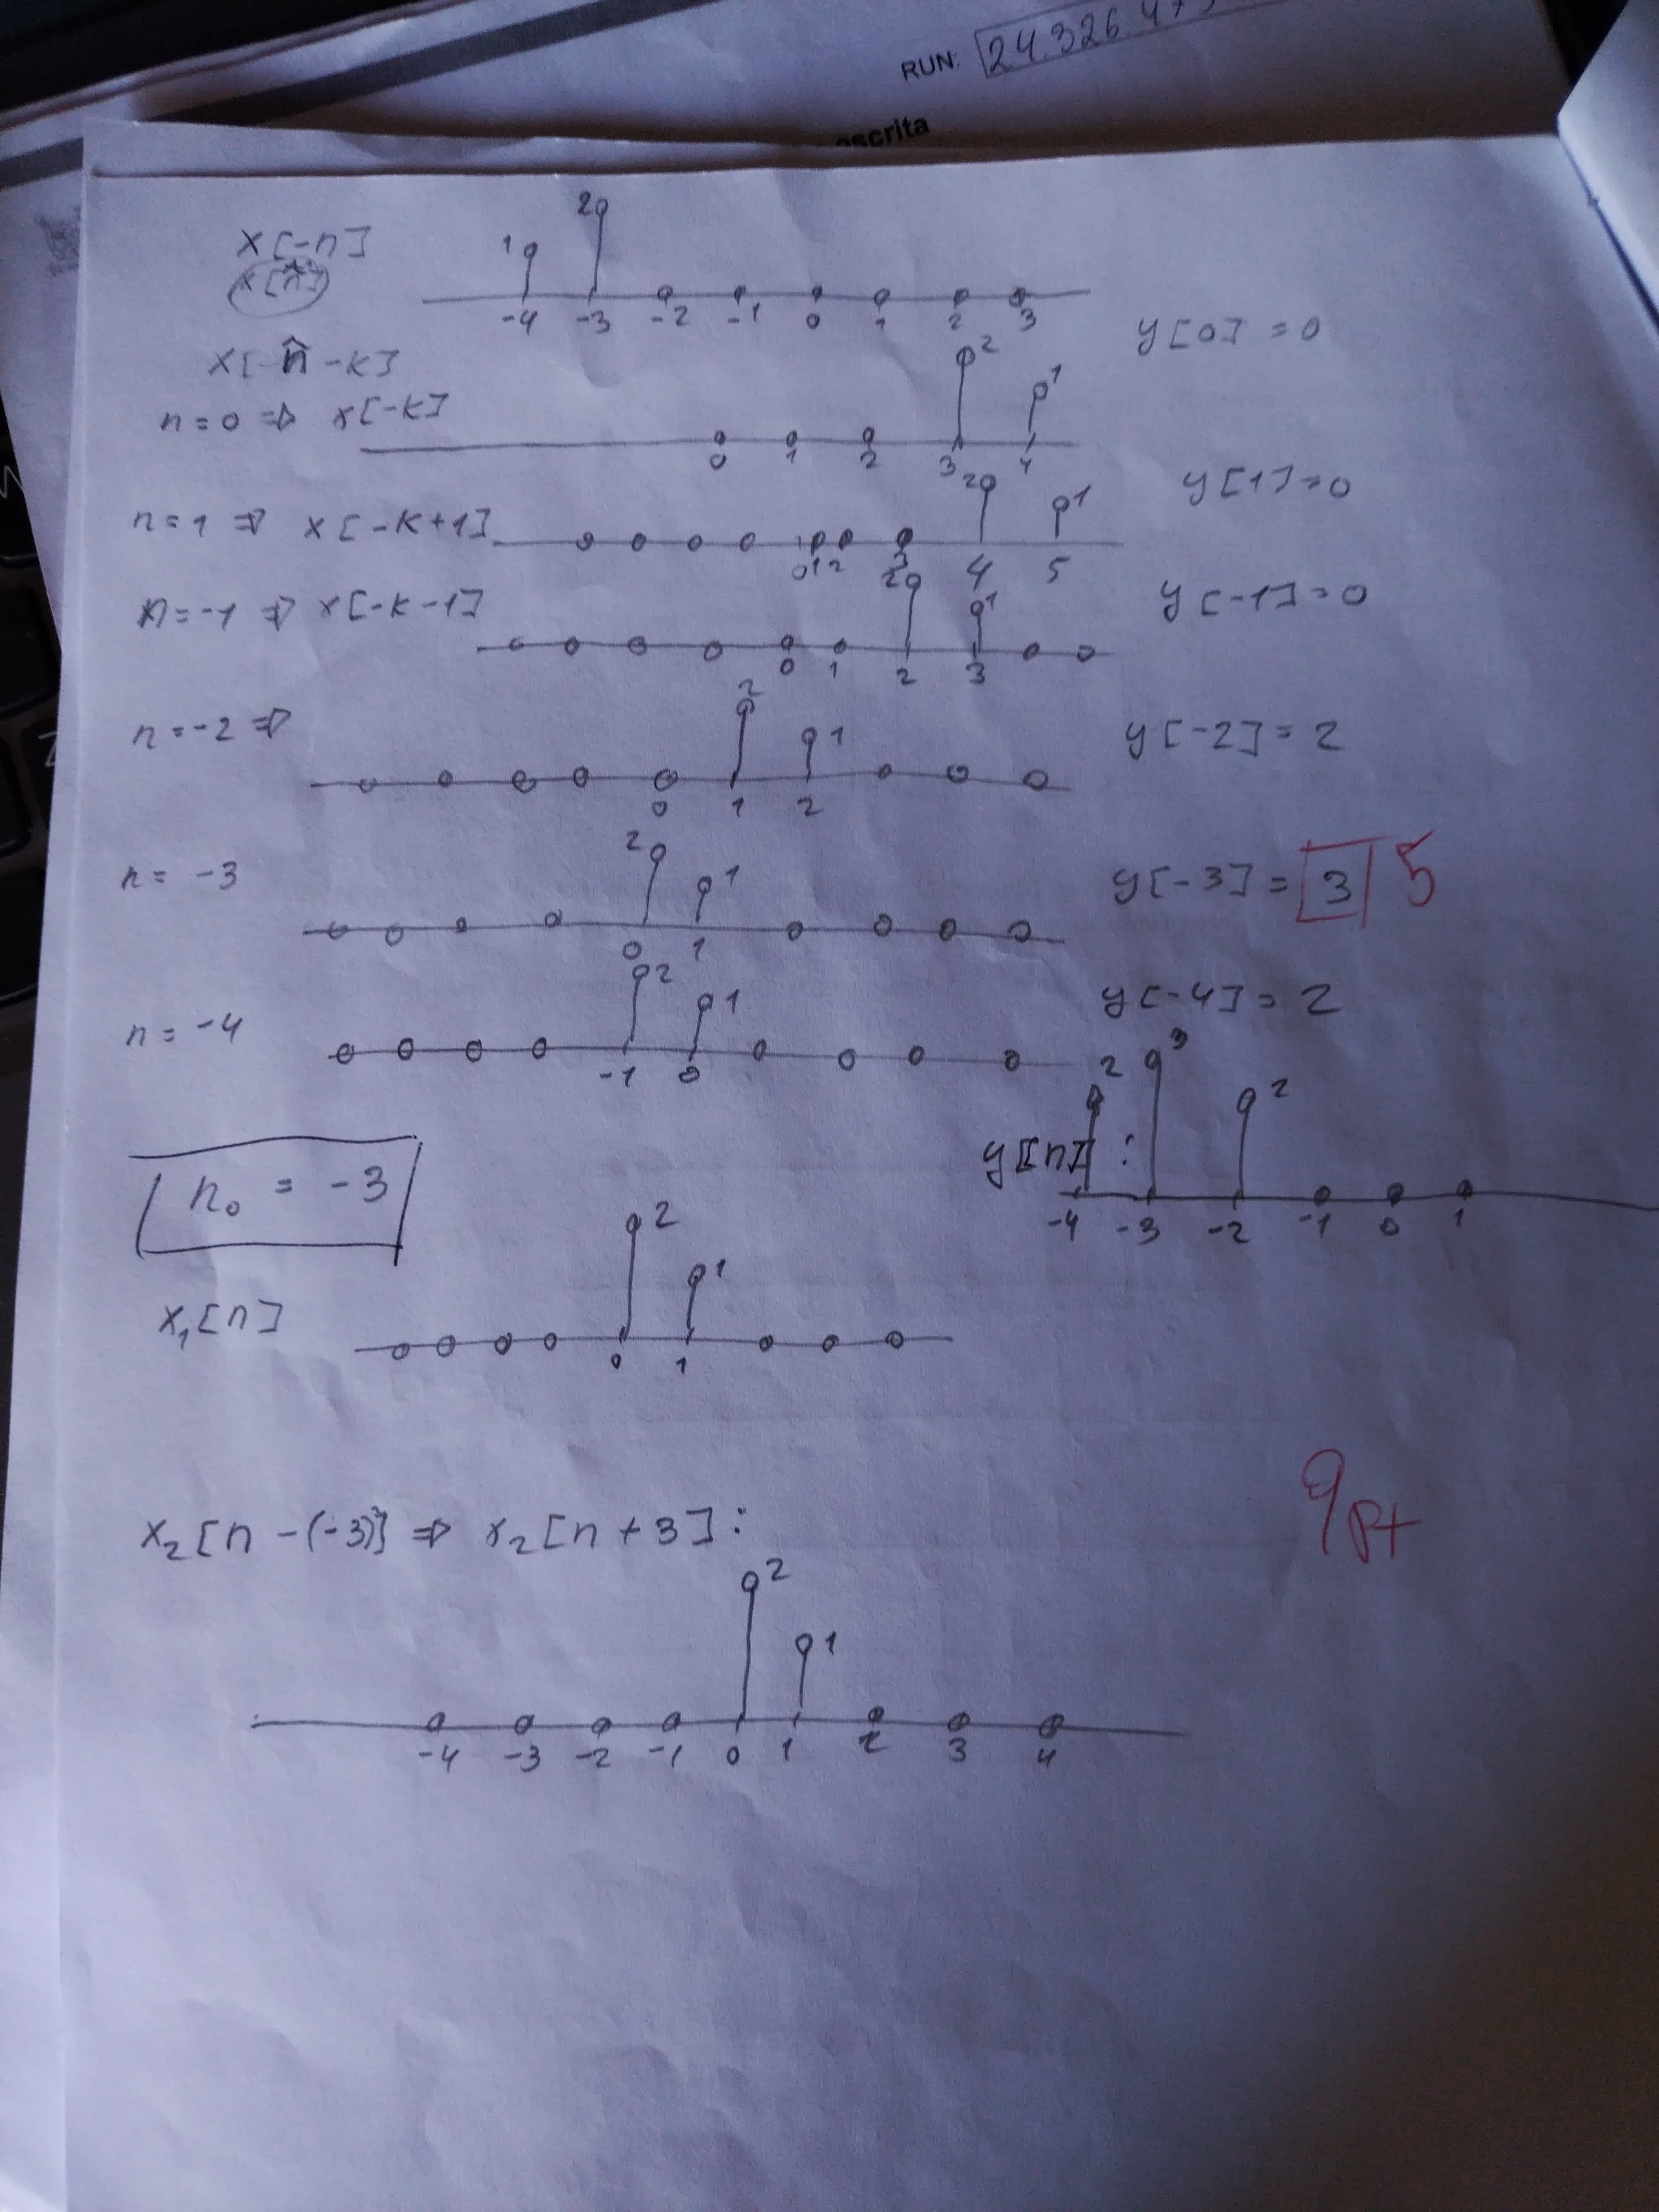 RUN: 24.326.47
escrita
x[-n]
1 2
-4 -3 -2 -1 0 1 2 3
y[0] = 0
n=0 ⇒ x[-k]
2 1
0 1 2 3 4
y[1] = 0
n=1 ⇒ x[-k+1]
2 1
0 1 2 3 4 5
y[-1] = 0
n=-1 ⇒ x[-k-1]
2 1
0 1 2 3
n=-2 ⇒
2 1
0 1 2
y[-2] = 2
n= -3
2 1
0 1
y[-3] = 3 5
n= -4
2 1
-1 0
y[-4] = 2
2 3 2
y[n] :
-4 -3 -2 -1 0 1
n₀ = -3
2 1
x₁[n]
0 1
x₂[n-(-3)] ⇒ x₂[n+3] :
9 pt
2
1
-4 -3 -2 -1 0 1 2 3 4